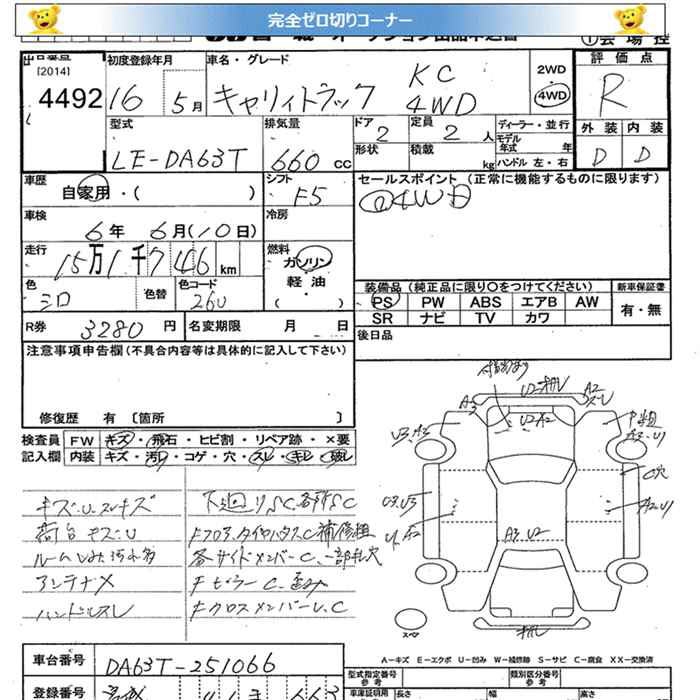 完全ゼロ切りコーナー
[2014]
4492
初度登録年月
16 5月
車名・グレード
キャリィトラック KC 4WD
2WD
4WD
評価点
R
外装 内装
D D
型式
LE-DA63T
排気量
660 cc
ドア
2
形状
定員
2 人
積載
kg
ディーラー・並行
モデル年式 年
ハンドル 左・右
車歴
自家用・( )
シフト
F5
冷房
セールスポイント (正常に機能するものに限ります)
4WD
車検
6年 6月(10日)
走行
15万1千746 km
燃料
ガソリン
軽油
( )
色
シロ
色替
色コード
26U
装備品 (純正品に限り○をつけてください)
新車保証書
PS PW ABS エアB AW
SR ナビ TV カワ
有・無
R券 3280 円
名変期限 月 日
後日品
注意事項申告欄 (不具合内容等は具体的に記入して下さい)
修復歴 有 〔箇所 〕
検査員記入欄
FW キズ・飛石・ヒビ割・リペア跡・×要
内装 キズ・汚レ・コゲ・穴・スレ・キレ・破レ
キズ・U・スレキズ
荷台キズ・U
アンテナメ
ハンドルスレ
下廻りSC、各所SC
各サイドメンバーC、一部札穴
FピラーC、歪み
A3
U2 A2
A2
U3、A3
A3・U1
C穴
U3、U3
A2・U1
A3、U2
スペア
A=キズ E=エクボ U=凹み W=補修跡 S=サビ C=腐食 XX=交換済
車台番号
DA63T-251066
登録番号
型式指定番号
参考
類別区分番号
参考
車庫証明用
長さ
幅
高さ